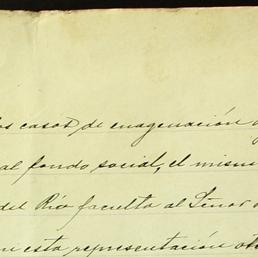 os casos de enagenación
al fondo social, el mism
del Río faculta al Señor
en esta representación ot